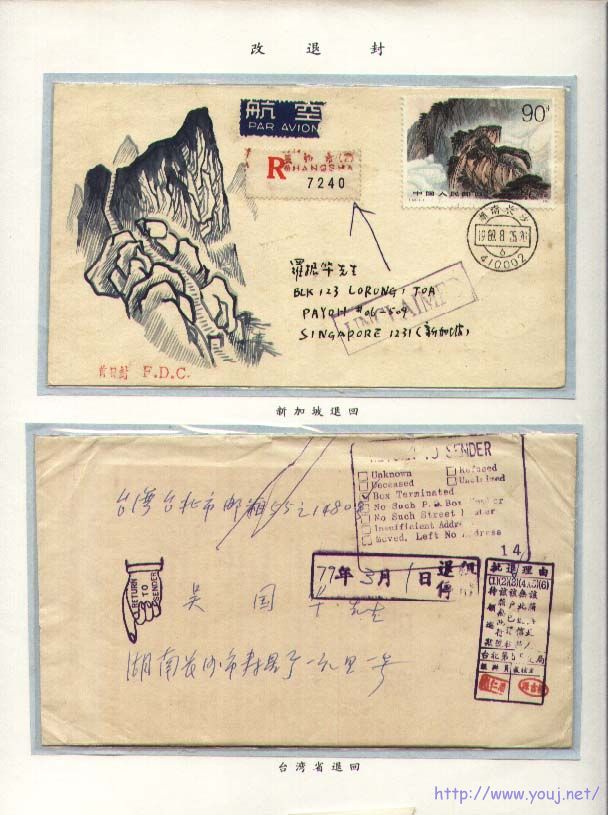 改 退 封
航 空
PAR AVION
R
CHANGSHA
7240
90分
中国人民邮政
湖南长沙
1989.8.25
6
410002
羅 华先生
BLK 123 LORUNG, TOA
PAYOH #06-509
SINGAPORE 1231 (新加坡)
UNCLAIMED
首日封 F.D.C.
新加坡退回
RETURN TO SENDER
Unknown Refused
Deceased Unclaimed
Box Terminated
No Such P.O.Box Number
No Such Street Number
Insufficient Address
Moved, Left No Address
14
台湾台北市邮箱55之1480
79年3月1日退
批退理由
(1)(2)(3)(4)(5)(6)
RETURN
TO
SENDER
吴 国 先生
湖南长沙市 一 里一号
台湾省退回
http://www.youj.net/